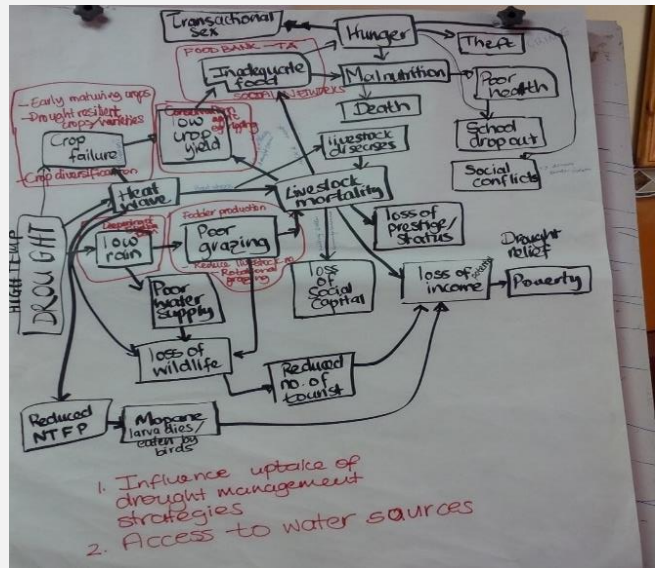 Transactional
sex
Hunger
Theft
FOOD BANK - TA
Inadequate
food
SOCIAL NETWORKS
Malnutrition
Poor
health
Death
School
drop out
Social
conflicts
- Early maturing crops
- Drought resilient
crops/varieties
Crop
failure
- Crop diversification
low
crop
yield
livestock
diseases
Heat
wave
Livestock
mortality
HIGH TEMP
DROUGHT
low
rain
Fodder production
Poor
grazing
- Reduce livestock no
- Rotational
grazing
loss of
prestige/
status
loss
of
Social
Capital
loss of
income
Drought
relief
Poverty
Poor
water
supply
loss of
wildlife
Reduced
no. of
tourist
Reduced
NTFP
Mopane
larva dies/
eaten by
birds
1. Influence uptake of
drought management
strategies
2. Access to water sources